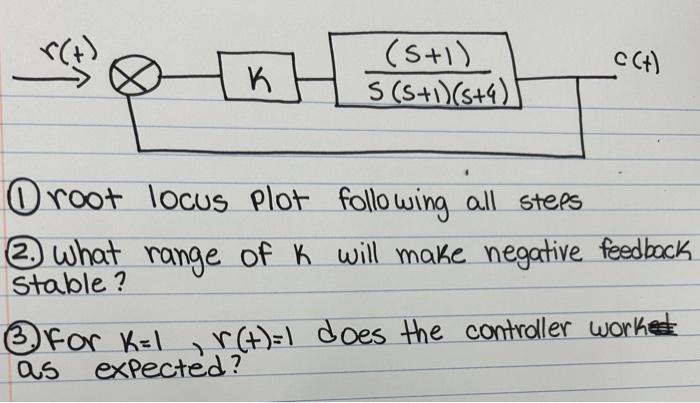 r(t)
K
(S+1)
S(S+1)(S+4)
c(t)
① root locus plot following all steps
②. what range of K will make negative feedback
stable?
③ For K=1, r(t)=1 does the controller work
as expected?